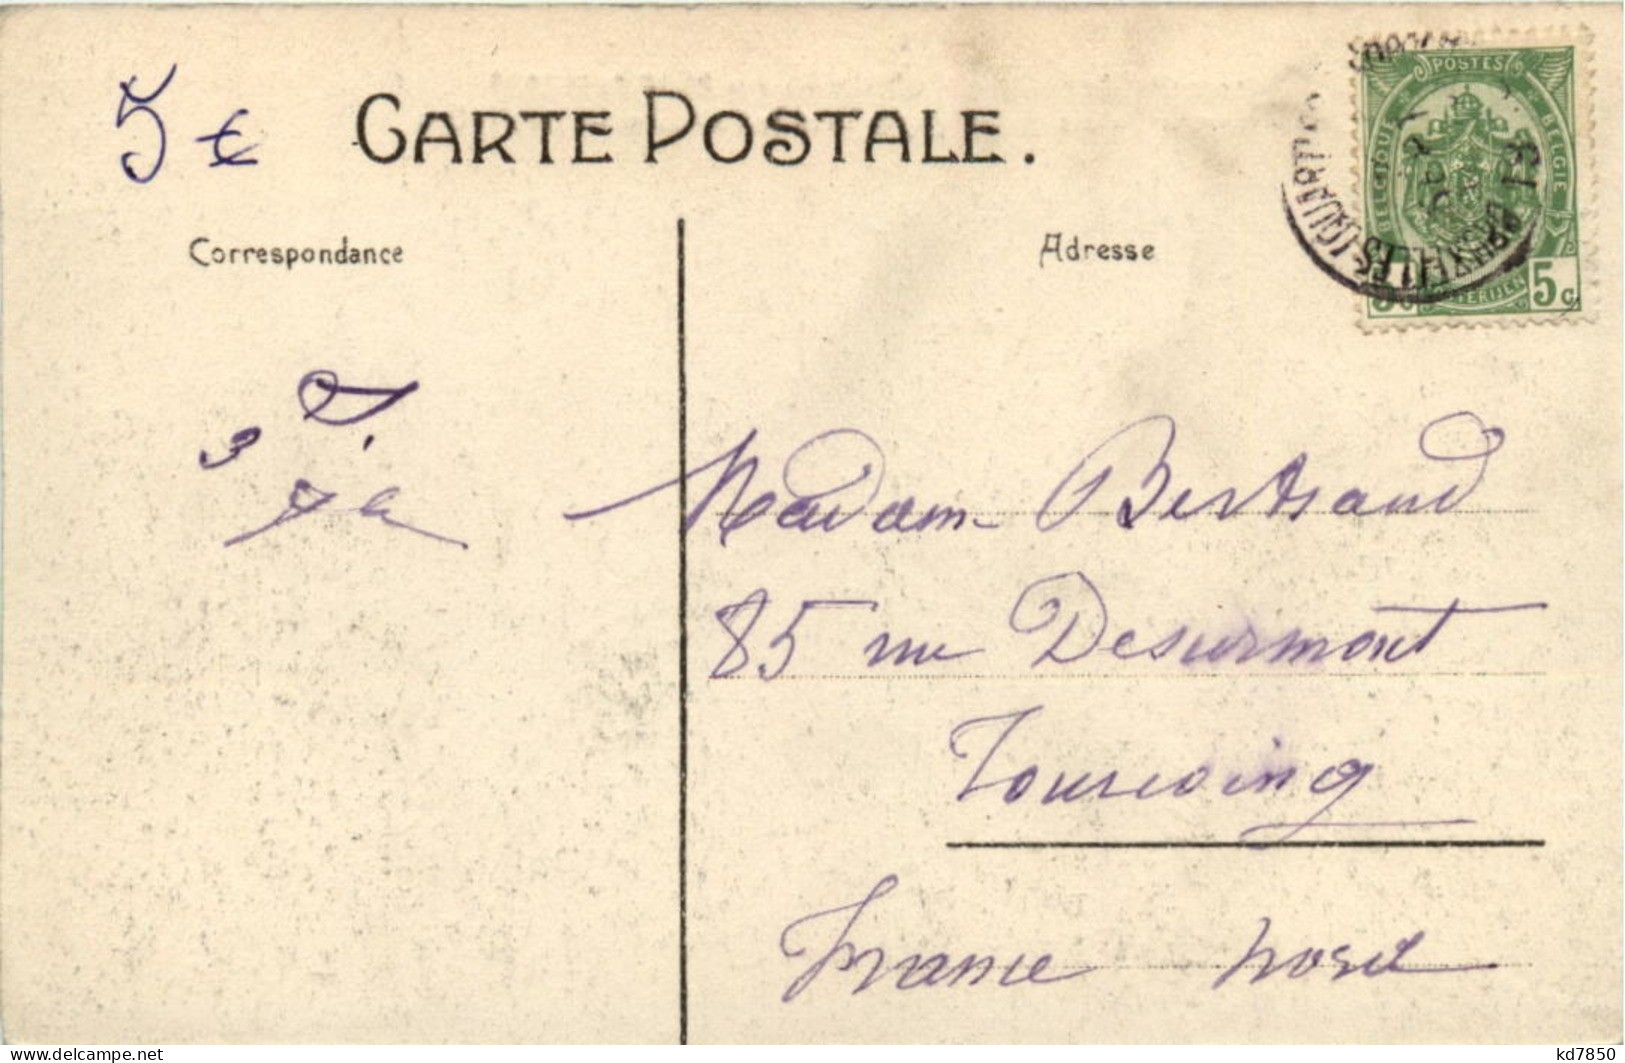 5 €
CARTE POSTALE.
Correspondance
Adresse
POSTES
BELGIQUE
BELGIE
5 c
Madam Bertrand
85 rue Desurmont
Tourcoing
France Nord
www.delcampe.net
kd7850